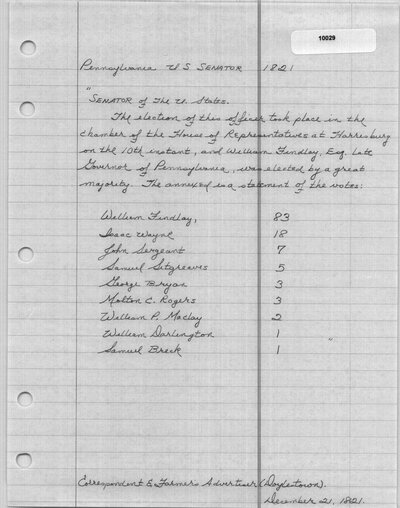 10029
Pennsylvania U S SENATOR 1821
"
SENATOR of the U. States.
The election of this officer took place in the
chamber of the House of Representatives at Harrisburg
on the 10th instant, and William Findlay, Esq. late
Governor of Pennsylvania, was elected by a great
majority. The annexed is a statement of the votes:
William Findlay, 83
Isaac Wayne 18
John Sergeant 7
Samuel Sitgreaves 5
George Bryan 3
Molton C. Rogers 3
William P. Maclay 2
William Darlington 1 "
Samuel Breck 1
Correspondent & Farmers Advertiser (Doylestown).
December 21, 1821.